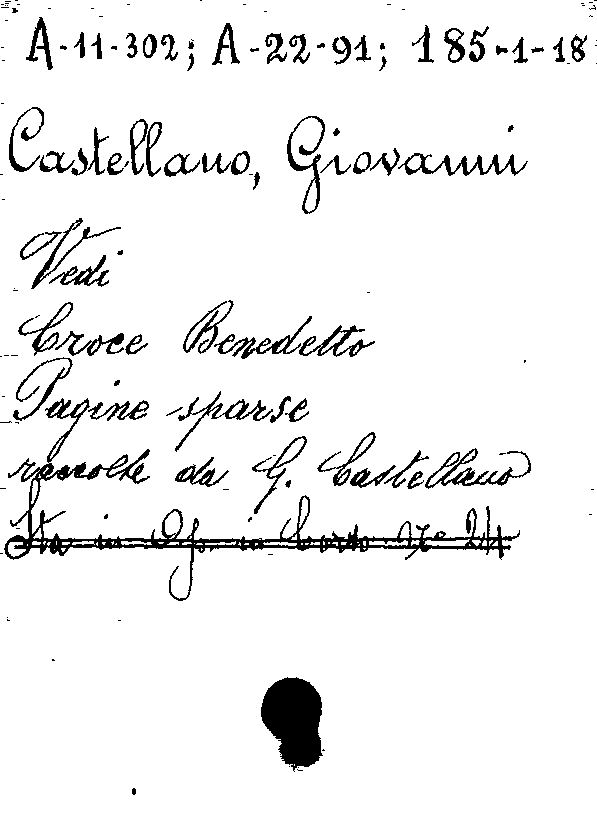 A-11-302; A-22-91; 185-1-18
Castellano, Giovanni
Vedi
Croce Benedetto
Pagine sparse
raccolte da G. Castellano
Sta in Op. in Corso N° 24